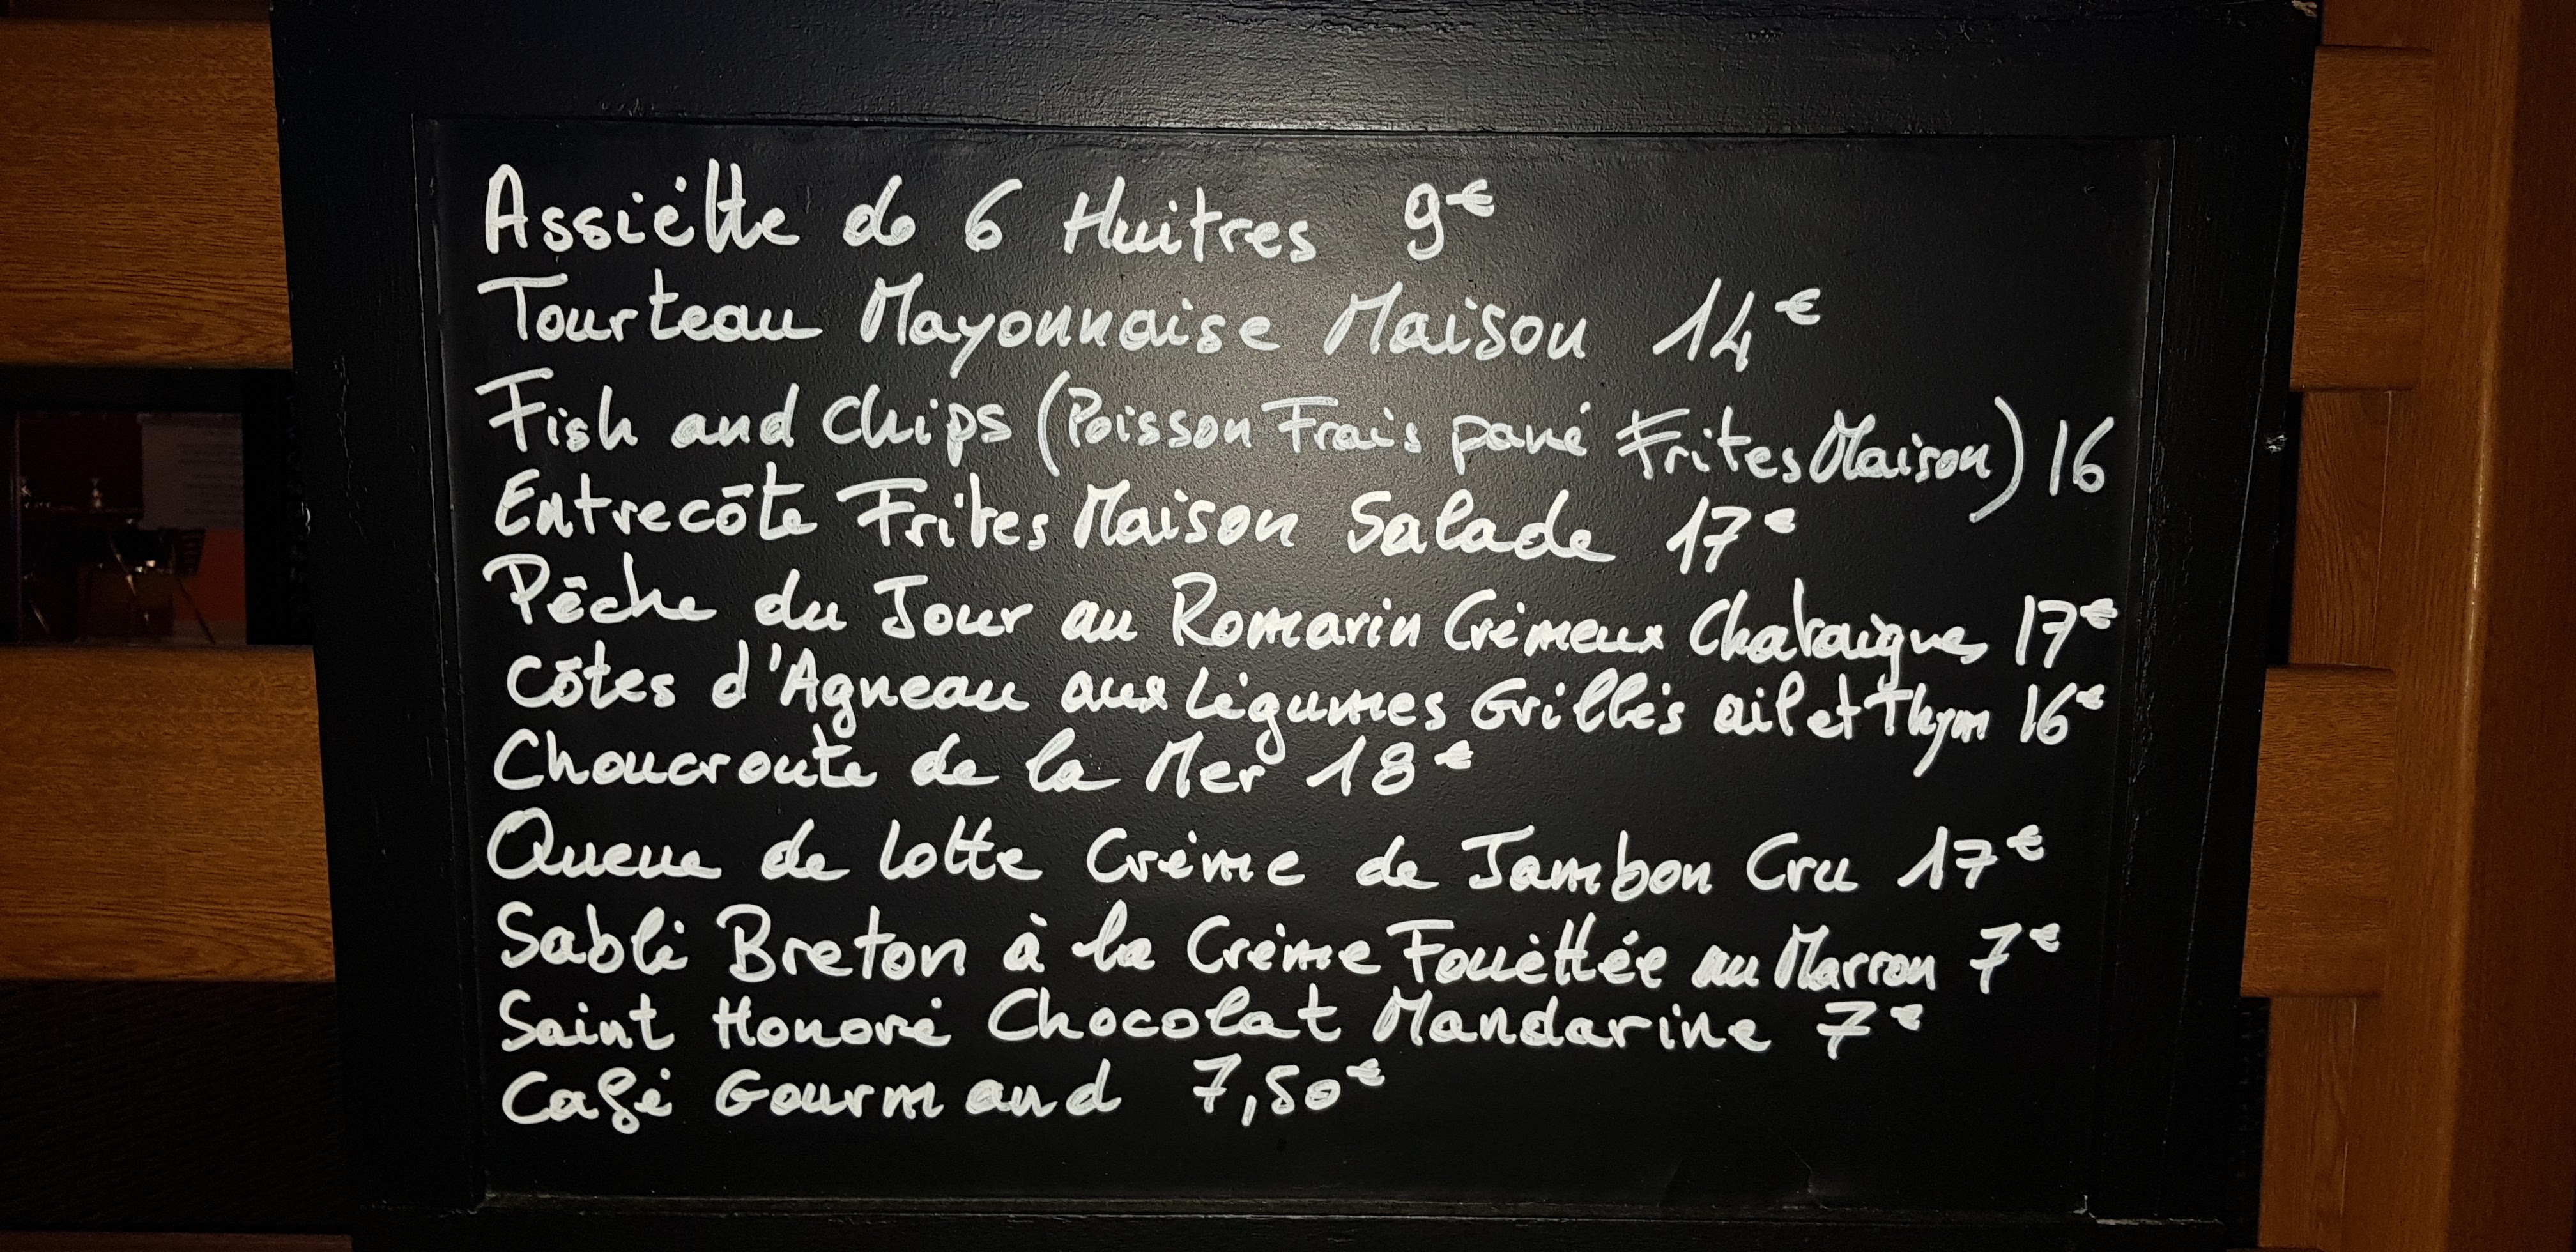 Assiètte de 6 Huitres 9€
Tourteau Mayonnaise Maison 14€
Fish and Chips (Poisson Frais pané Frites Maison) 16
Entrecôte Frites Maison Salade 17€
Pêche du Jour au Romarin Crémeux Chataignes 17€
Côtes d'Agneau aux Légumes Grillés ail et Thym 16€
Choucroute de la Mer 18€
Queue de Lotte Crème de Jambon Cru 17€
Sablé Breton à la Crème Fouèttée au Marron 7€
Saint Honoré Chocolat Mandarine 7€
Café Gourmand 7,50€